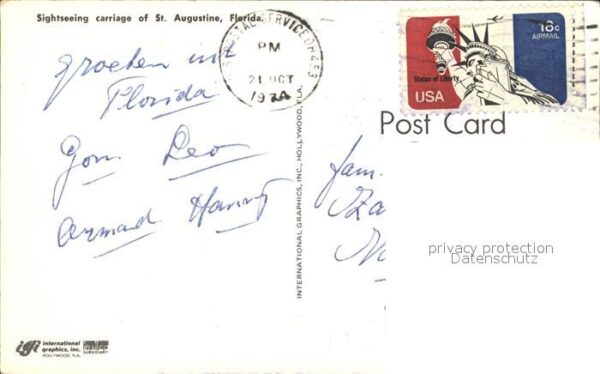 Sightseeing carriage of St. Augustine, Florida.
POSTAL SERVICE
PM
21 OCT
197
18c
AIRMAIL
Statue of Liberty
USA
Post Card
groeten uit
Florida
Leo
Armand Hanny
fam.
privacy protection
Datenschutz
INTERNATIONAL GRAPHICS, INC., HOLLYWOOD, FLA.
igi international
graphics, inc.
HOLLYWOOD, FLA.
SUBSIDIARY